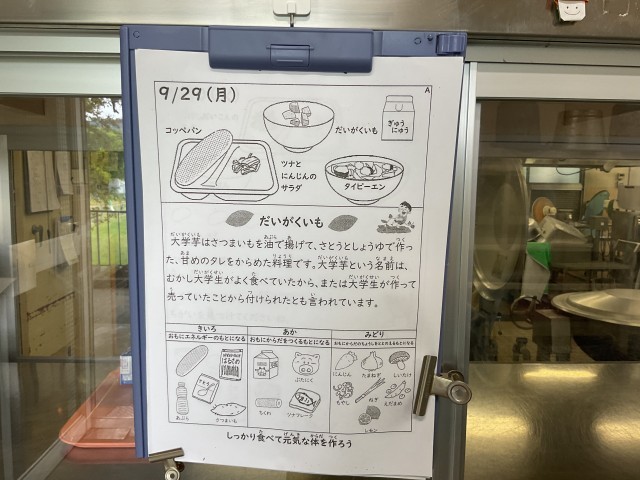 9/29(月)
A
コッペパン
だいがくいも
ぎゅう
にゅう
ツナと
にんじんの
サラダ
タイピーエン
だいがくいも
大学芋はさつまいもを油で揚げて、さとうとしょうゆで作っ
た、甘めのタレをからめた料理です。大学芋という名前は、
むかし大学生がよく食べていたから、または大学生が作って
売っていたことから付けられたとも言われています。
きいろ
おもにエネルギーのもとになる
あか
おもにからだをつくるもとになる
みどり
おもにからだのちょうしをととのえるもとになる
はるさめ
ぶたにく
にんじん
たまねぎ
しいたけ
あぶら
さつまいも
ちくわ
ツナフレーク
もやし
ねぎ
えだまめ
レモン
しっかり食べて元気な体を作ろう